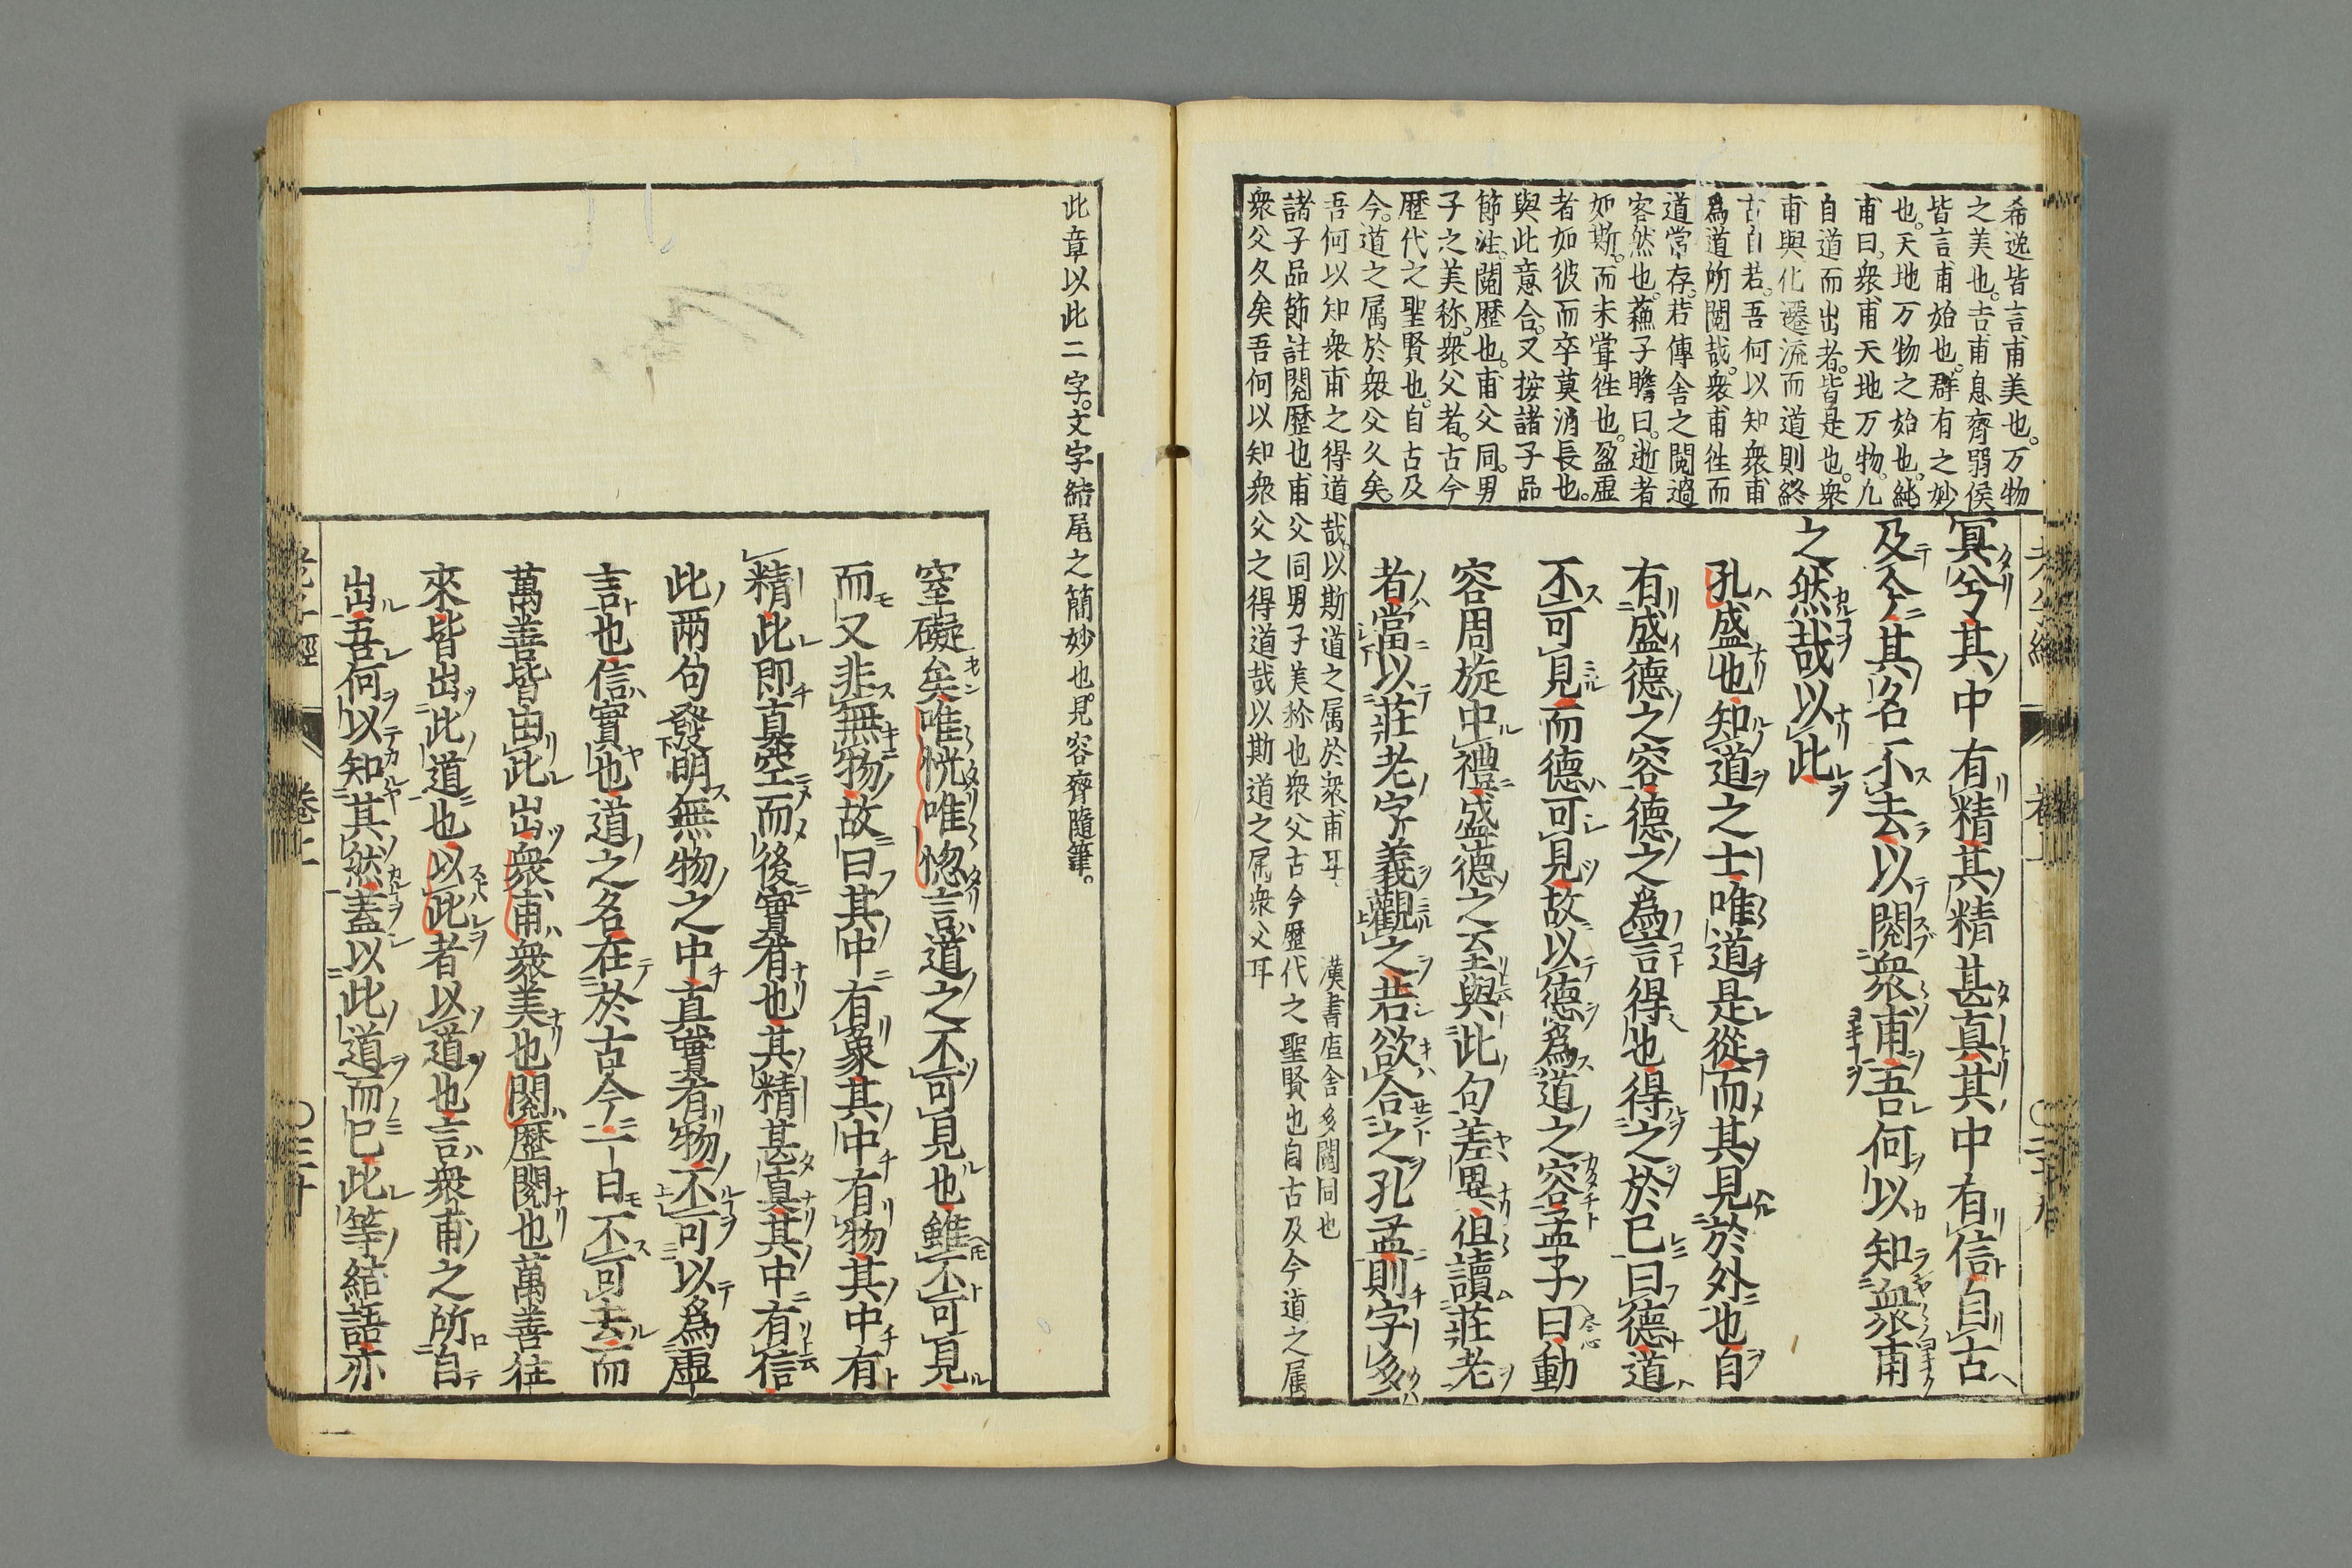 希逸皆言甫美也。万物
之美也。吉甫息齊弱侯
皆言甫始也。群有之妙
也。天地万物之始也。純
甫曰。衆甫天地万物。凡
自道而出者。皆是也。衆
甫與化遷流而道則終
古自若。吾何以知衆甫
爲道所閲哉。衆甫徃而
道常存。若傳舎之閲過
客然也。蘓子瞻曰。逝者
如斯。而未甞徃也。盈虚
者如彼而卒莫消長也。
與此意合。又按諸子品
節注。閲歴也。甫父同。男
子之美称。衆父者。古今
歴代之聖賢也。自古及
今。道之属於衆父久矣。
吾何以知衆甫之得道哉。以斯道之属於衆甫耳。
漢書店舎多閲同也
諸子品節註閲歴也甫父同男子美称也衆父古今歴代之聖賢也自古及今道之属
衆父久矣吾何以知衆父之得道哉以斯道之属衆父耳
冥兮其中有精其精甚真其中有信自古
及今其名不去以閲衆甫吾何以知衆甫
之然哉以此
孔盛也知道之士唯道是從而其見於外也自
有盛德之容德之爲言得也得之於已曰德道
不可見而德可見故以德爲道之容孟子曰動
容周旋中禮盛德之至與此句差異但讀莊老
者當以莊老字義觀之若欲合之孔孟則字多
此章以此二字。文字結尾之簡妙也。見容齊隨筆。
窒礙矣唯恍唯惚言道之不可見也雖不可見
而又非無物故曰其中有象其中有物其中有
精此即真空而後實有也其精甚真其中有信
此兩句發明無物之中真實有物不可以爲虚
言也信實也道之名在於古今一日不可去而
萬善皆由此出衆甫衆美也閲歴閲也萬善往
來皆出此道也以此者以道也言衆甫之所自
出吾何以知其然蓋以此道而已此等結語亦